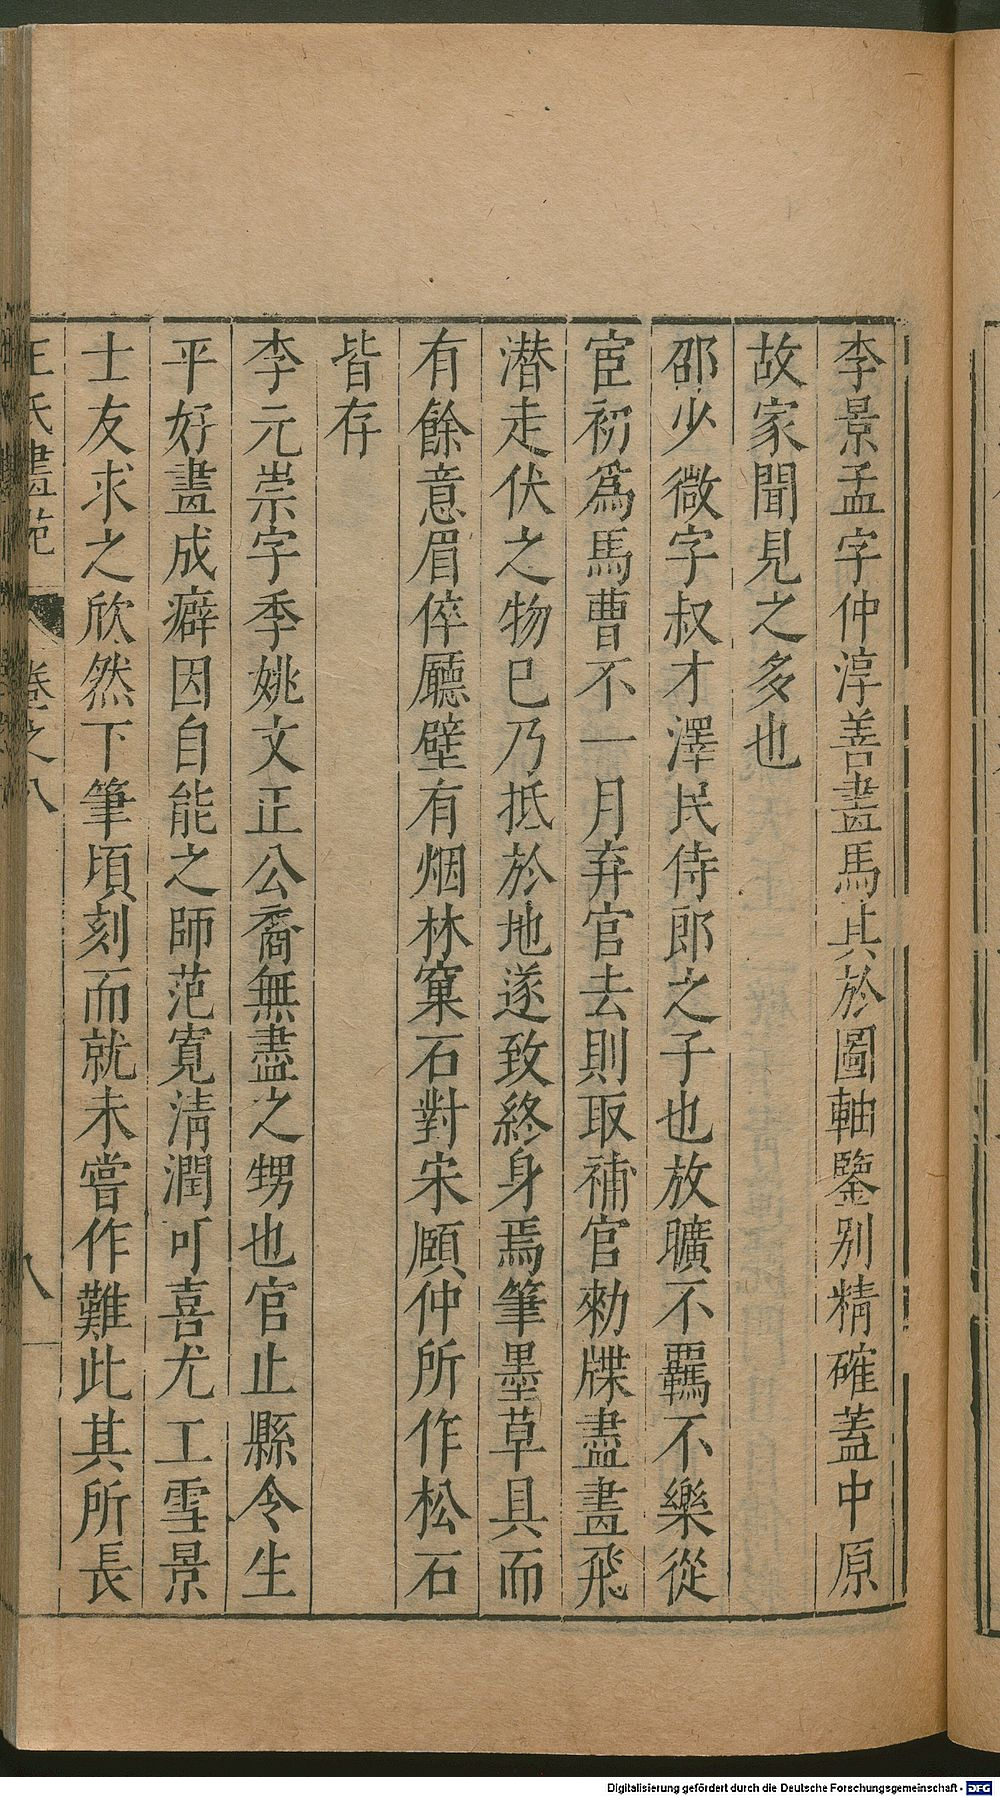 李景孟字仲淳善畫馬其於圖軸鑒别精確蓋中原
故家聞見之多也
邵少微字叔才澤民侍郎之子也放曠不羈不樂從
宦初爲馬曹不一月弃官去則取補官勑牒盡畫飛
潜走伏之物已乃抵於地遂致終身焉筆墨草具而
有餘意眉倅廳壁有烟林窠石對宋願仲所作松石
皆存
李元崇字季姚文正公裔無盡之甥也官止縣令生
平好畫成癖因自能之師范寬清潤可喜尤工雪景
士友求之欣然下筆頃刻而就未嘗作難此其所長
王氏畫苑 卷之八 八
Digitalisierung gefördert durch die Deutsche Forschungsgemeinschaft - DFG